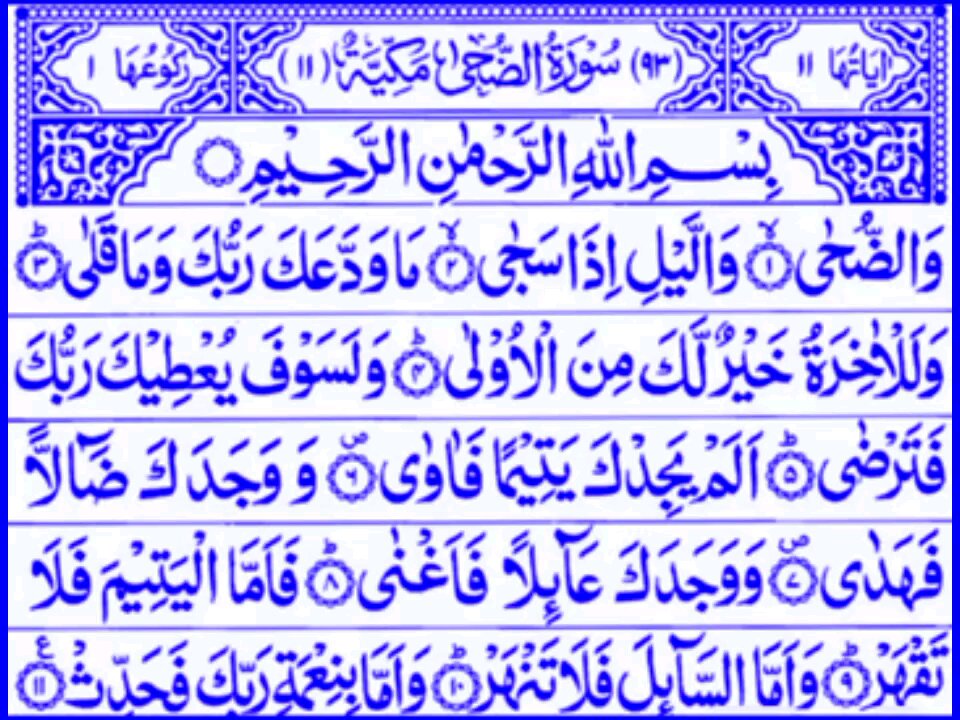 اٰيَاتُهَا ١١ (٩٣) سُوْرَةُ الضُّحٰى مَكِّيَّةٌ (١١) رُكُوْعُهَا ١
بِسْمِ اللهِ الرَّحْمٰنِ الرَّحِيْمِ
وَالضُّحٰى ۙ﴿١﴾ وَالَّيْلِ اِذَا سَجٰى ۙ﴿٢﴾ مَا وَدَّعَكَ رَبُّكَ وَمَا قَلٰى ؕ﴿٣﴾
وَلَلْاٰخِرَةُ خَيْرٌ لَّكَ مِنَ الْاُوْلٰى ؕ﴿٤﴾ وَلَسَوْفَ يُعْطِيْكَ رَبُّكَ
فَتَرْضٰى ؕ﴿٥﴾ اَلَمْ يَجِدْكَ يَتِيْمًا فَاٰوٰى ۪﴿٦﴾ وَ وَجَدَكَ ضَآلًّا
فَهَدٰى ۪﴿٧﴾ وَوَجَدَكَ عَآئِلًا فَاَغْنٰى ؕ﴿٨﴾ فَاَمَّا الْيَتِيْمَ فَلَا
تَقْهَرْ ؕ﴿٩﴾ وَاَمَّا السَّآئِلَ فَلَا تَنْهَرْ ؕ﴿١٠﴾ وَاَمَّا بِنِعْمَةِ رَبِّكَ فَحَدِّثْ ﴿١١﴾ ع